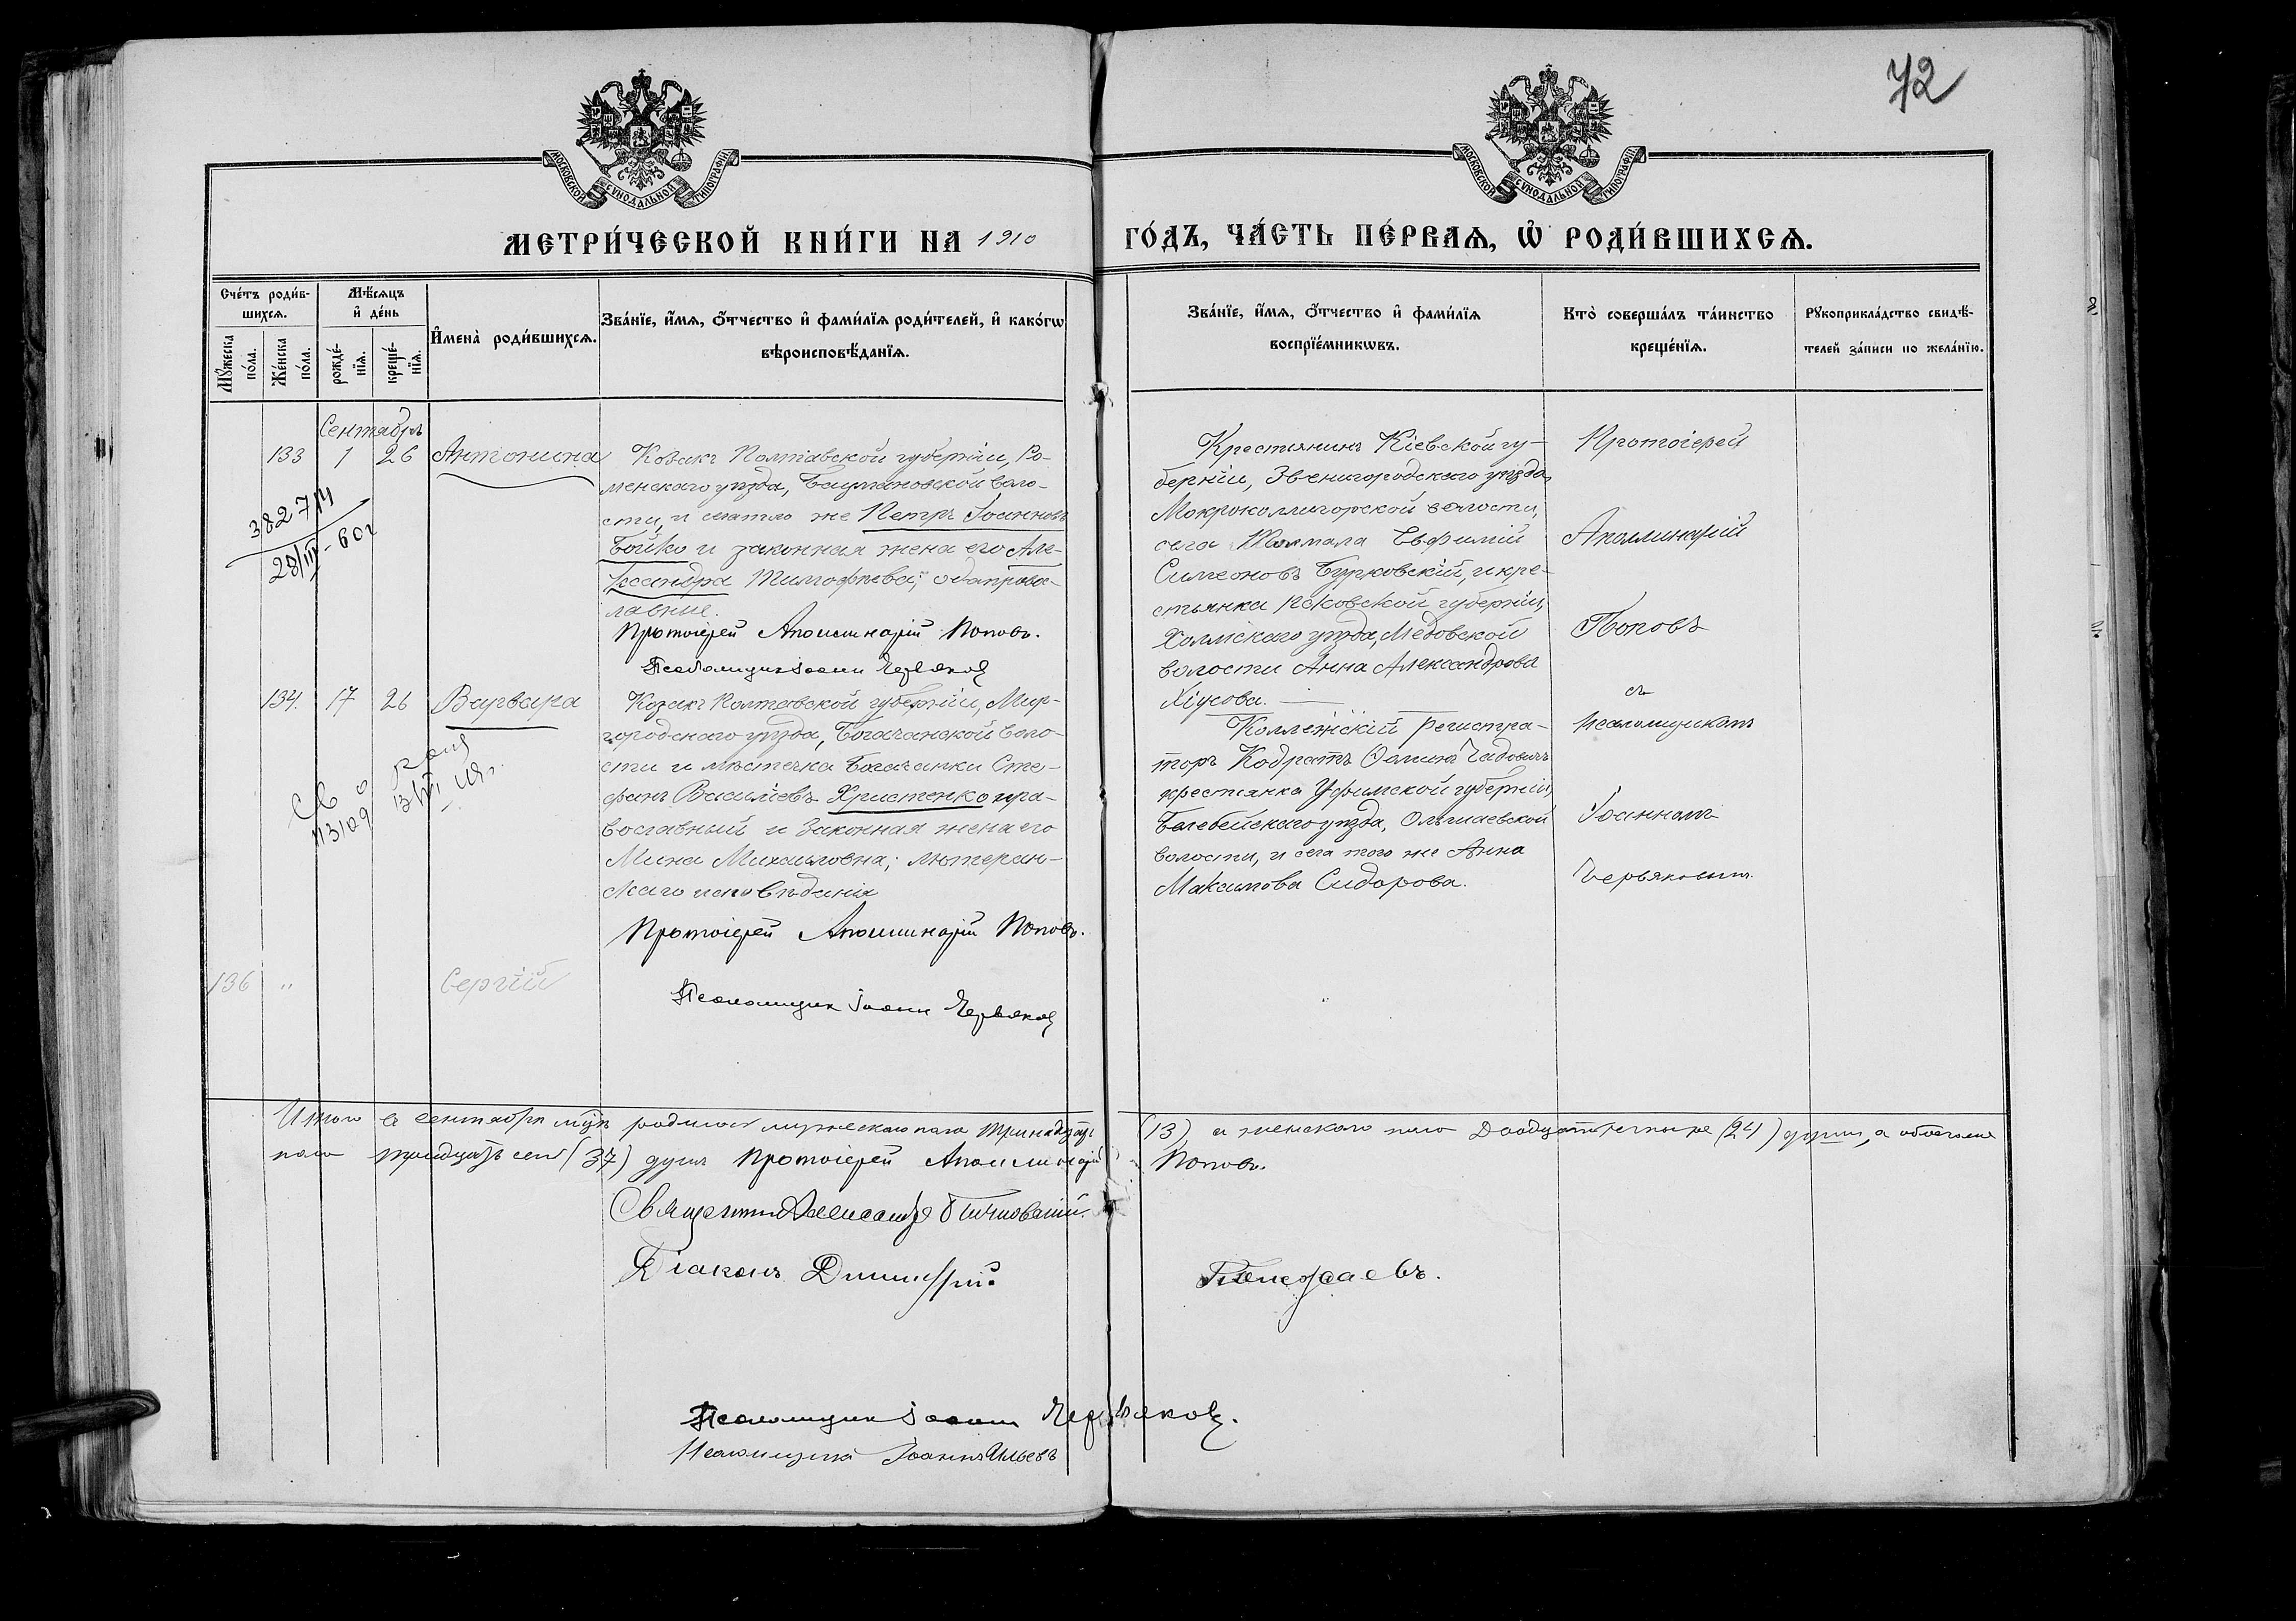 72
МОСКОВСКОЙ СѴНОДАЛЬНОЙ ТИПОГРАФІИ
МОСКОВСКОЙ СѴНОДАЛЬНОЙ ТИПОГРАФІИ
МЕТРИ́ЧЕСКОЙ КНИ́ГИ НА 1910 ГО́ДЪ, ЧА́СТЬ ПЕ́РВАѦ, Ѡ҆ РОДИ́ВШИХСѦ.
Сче́тъ роди́в-
шихсѧ.
Мꙋ́жеска по́ла.
Же́нска по́ла.
Мѣ́сѧцъ
и҆ де́нь
рожде́-
нїѧ.
креще́-
нїѧ.
И҆мена̀ роди́вшихсѧ.
Зва́нїе, и҆́мѧ, ѻ҆́тчество и҆ фами́лїѧ роди́телей, и҆ како́гѡ
вѣроисповѣ́данїѧ.
Зва́нїе, и҆́мѧ, ѻ҆́тчество и҆ фами́лїѧ
воспрїе́мникѡвъ.
Кто̀ соверша́лъ та́инство
креще́нїѧ.
Рꙋкоприкла́дство свидѣ́-
телей за́писи по жела́нїю.
Сентябрь
133 1 26 Антонина
382714
28/III - 60г
Козакъ Полтавской губерніи, Ро-
менскаго уѣзда, волo-
сти, и же Петръ Іоанновъ
Бойко и законная жена его Але-
ксандра Тимофѣева; оба право-
лавные.
Протоіерей Аполлинарій Поповъ.
Псаломщик Іоанн Червяков
Крестьянинъ Кіевской гу-
берніи, Звенигородскаго уѣзда,
Мокрокалигорской волости,
села Евфимій
Симеоновъ Бурковскій, и кре-
стьянка Псковской губерніи,
Холмскаго уѣзда, Медовской
волости Анна Александрова
Протоіерей
Аполлинарій
Поповъ
съ
Псаломщикомъ
Іоанномъ
Червяковымъ
134. 17 26 Варвара
113109 13/VI
Козакъ Полтавской губерніи, Мир-
городскаго уѣзда, Богачанской воло-
сти и мѣстечка Богачанки Сте-
фанъ Васильевъ Христенко пра-
вославный и законная жена его
Мина Михаиловна; лютеран-
скаго исповѣданія
Протоіерей Аполлинарій Поповъ.
Псаломщик Іоанн Червяков
Коллежскій Регистра-
торъ Кодратъ Чадовичъ
крестьянка Уфимской губерніи,
Белебейскаго уѣзда,
волости, и села того же Анна
Максимова Сидорова.
136 " Сергій
Итого в сентябрѣ мцѣ родилось мужескаго пола тринадцать (13), а женскаго пола двадцать четыре (24) души, а обоего
пола тридцать семь (37) душъ Протоіерей Аполлинарій Поповъ.
Священникъ Александр
Діаконъ Димитрій
Псаломщик Іоанн Червяков.
Псаломщикъ Іоаннъ Ильевъ